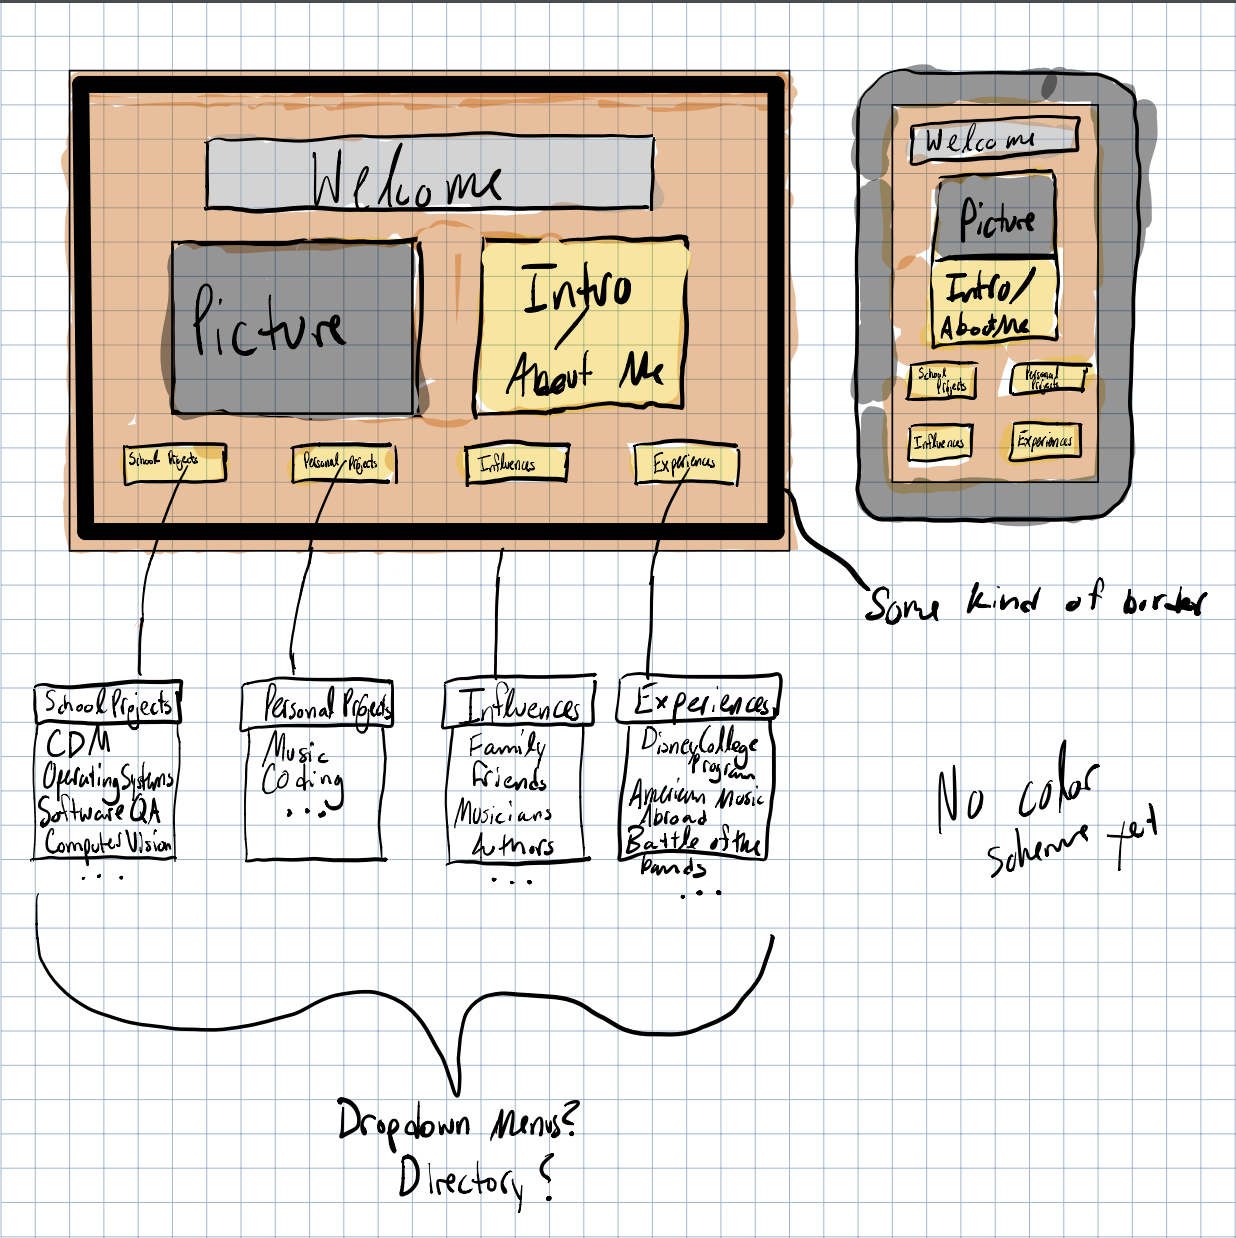 Welcome
Picture
Intro
/
About Me
School Projects
Personal Projects
Influences
Experiences
Welcome
Picture
Intro/
About Me
School
Projects
Personal
Projects
Influences
Experiences
Some kind of border
School Projects
CDM
Operating Systems
Software QA
Computer Vision
...
Personal Projects
Music
Coding
...
Influences
Family
Friends
Musicians
Authors
...
Experiences
Disney College
Program
American Music
Abroad
Battle of the
bands
...
No color
scheme yet
Dropdown Menus?
Directory?